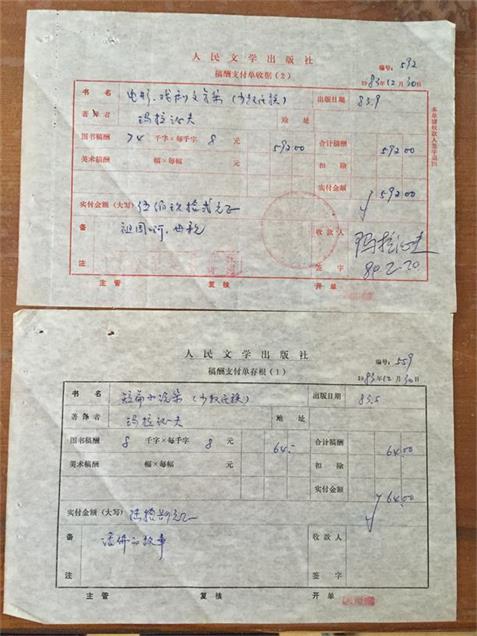 人民文学出版社
编号：592
稿酬支付单收据（2）
1983年12月30日
书名 电影、戏剧文学集（少数民族） 出版日期 83.9
著译者 玛拉沁夫 地址
图书稿酬 74 千字×每千字 8 元 592.00 合计稿酬 592.00
美术稿酬 幅×每幅 扣除
实付金额 592.00
实付金额（大写） 伍佰玖拾贰元正
备注 祖国啊，母亲 收款人签字 玛拉沁夫
主管 复核 开单
人民文学出版社
稿酬支付单存根（1）
编号：559
1983年12月30日
书名 短篇小说集（少数民族） 出版日期 83.5
著译者 玛拉沁夫 地址
图书稿酬 8 千字×每千字 8 元 64.- 合计稿酬 64.00
美术稿酬 幅×每幅 扣除
实付金额 64.00
实付金额（大写） 陆拾肆元正
备注 活佛的故事 收款人签字
主管 复核 开单